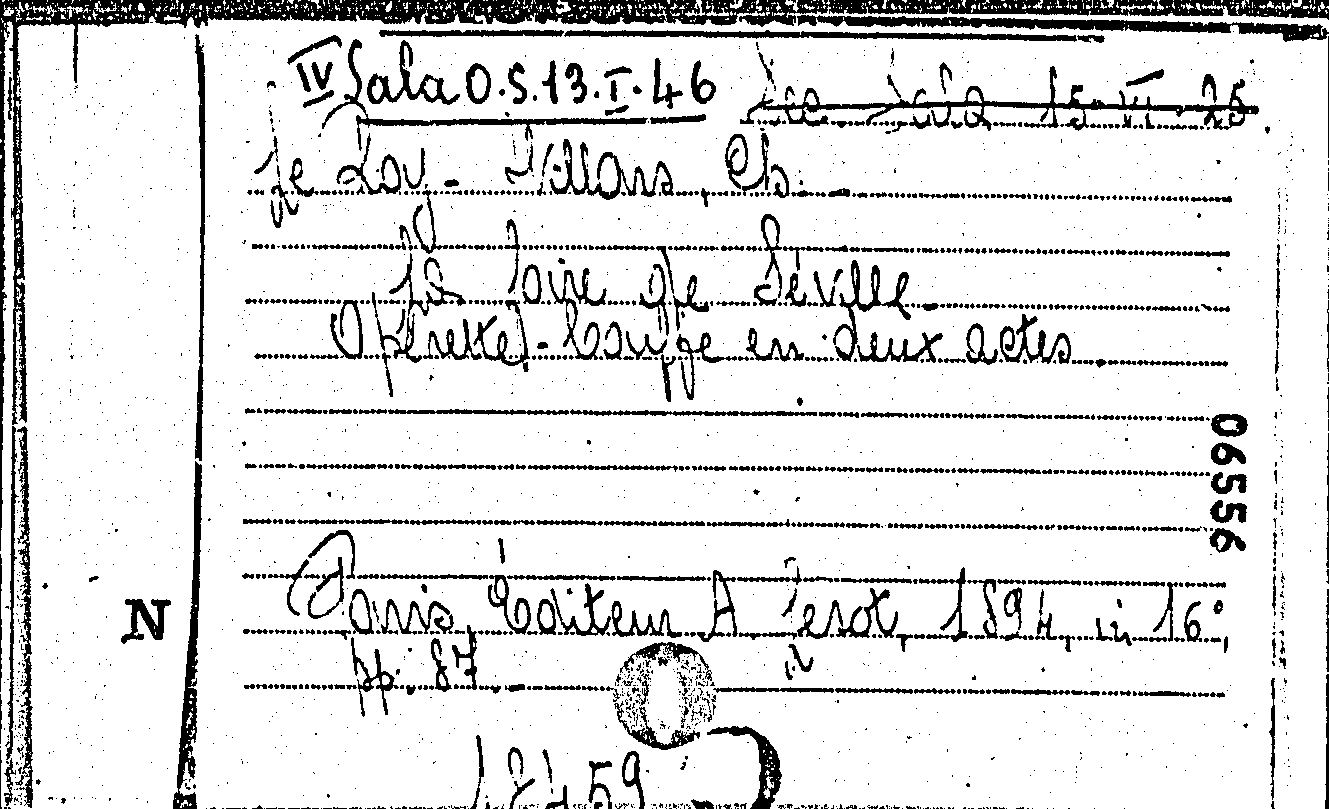 IV Sala O.S.13.I.46
Le Roy - Villars, Ch. -
La Foire de Séville.
Opérette-bouffe en deux actes.
06556
Paris, Éditeur A. 1894, in 16°,
N
pp. 87. -